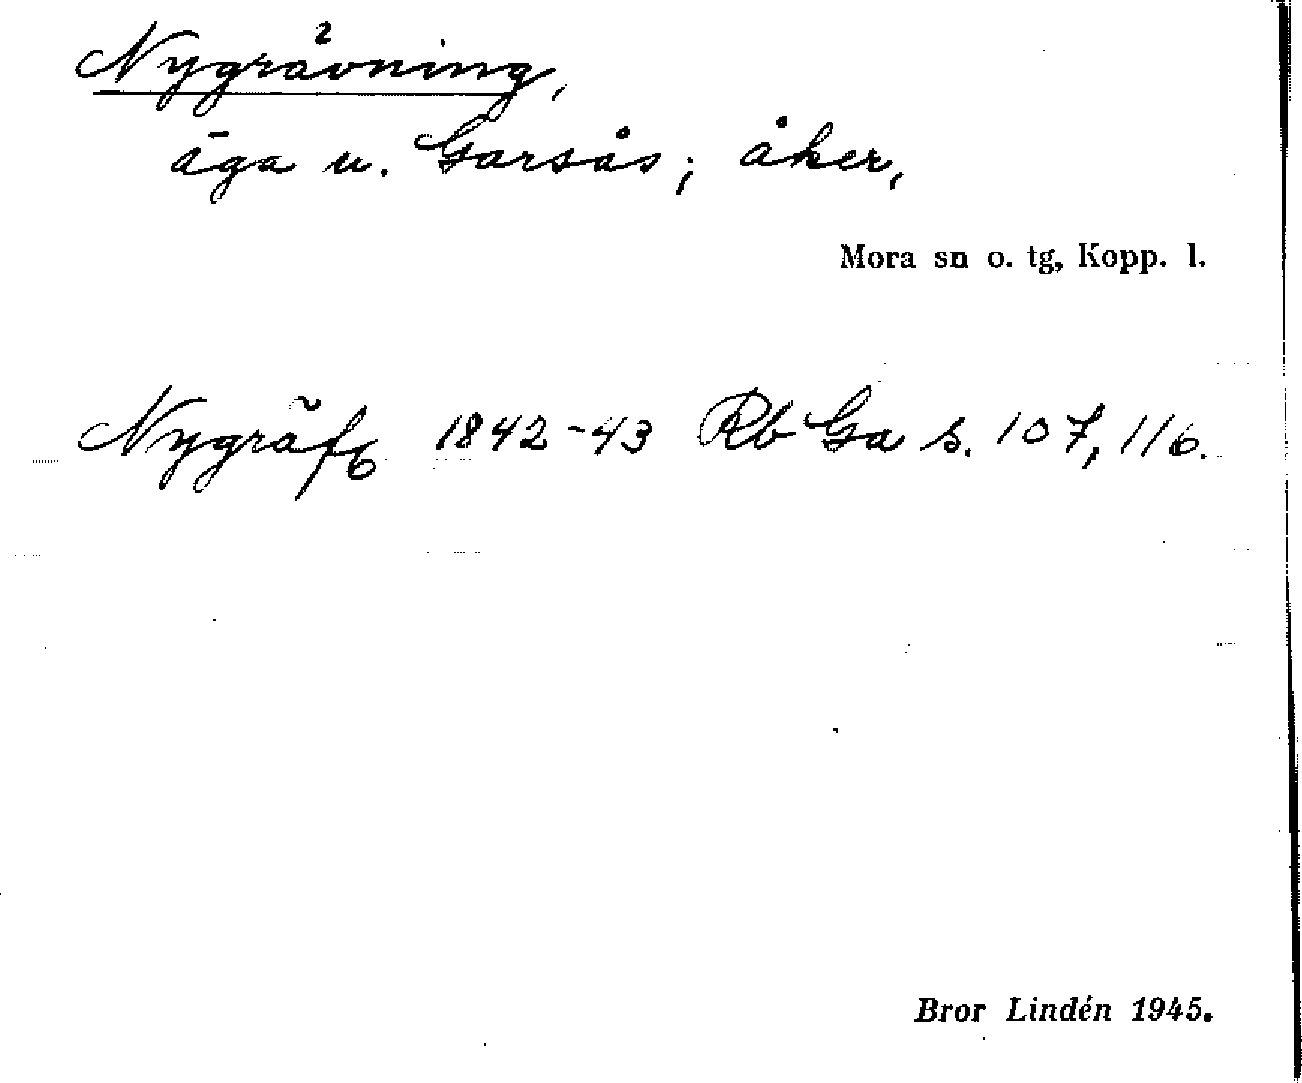 Nygrävning,
äga u. Garsås; åker,
Mora sn o. tg, Kopp. l.
Nygräfs 1842-43 Rb Ga s. 107, 116.
Bror Lindén 1945.